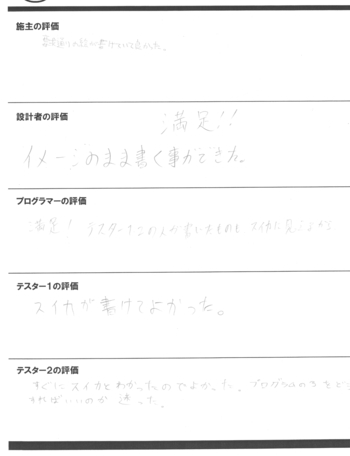 施主の評価
書けていて良かった。
設計者の評価
満足!!
イメージのまま書く事ができた。
プログラマーの評価
満足! テスター1、2の2人が書いたものも スイカに見え
テスター1の評価
スイカが書けてよかった。
テスター2の評価
すぐに スイカとわかったのでよかった。プログラムの3をどう
すればいいのか 迷った。